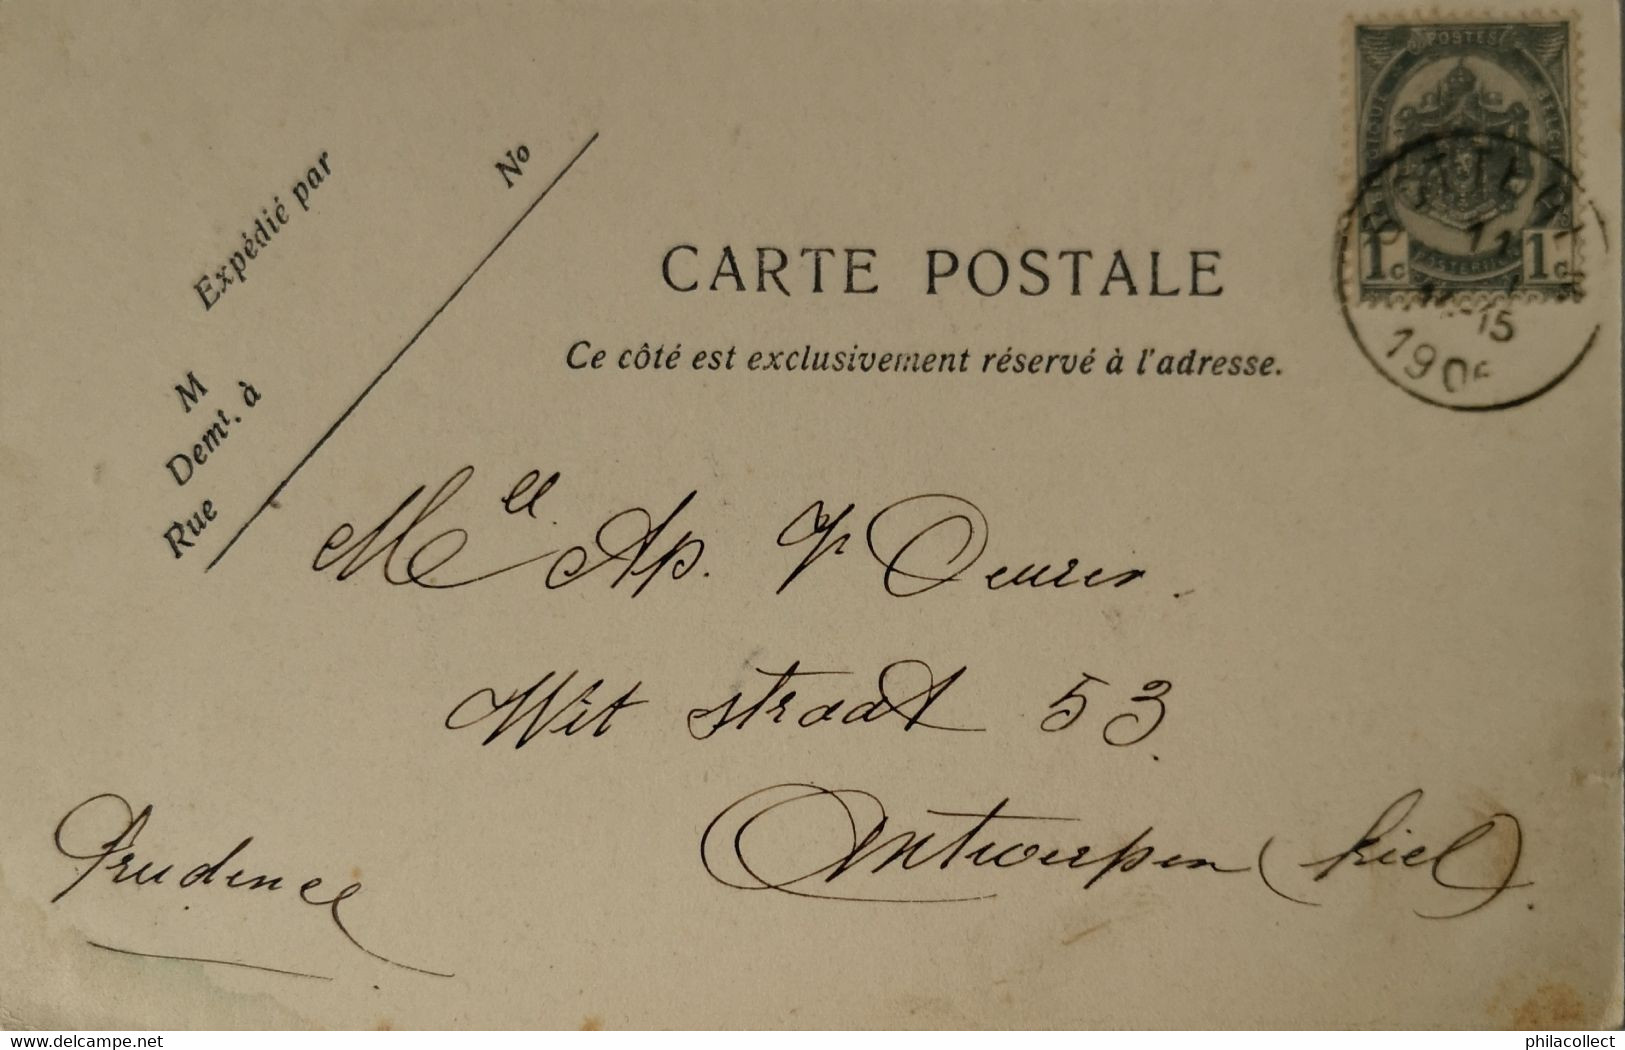 POSTES
BELGIQUE
1c 1c
15
190
Expédié par
No
M
Demt. à
Rue
CARTE POSTALE
Ce côté est exclusivement réservé à l'adresse.
Mell Ap.
Wit straat 53.
Antwerpen (kiel).
Prudence
hippostcard.com philacollect